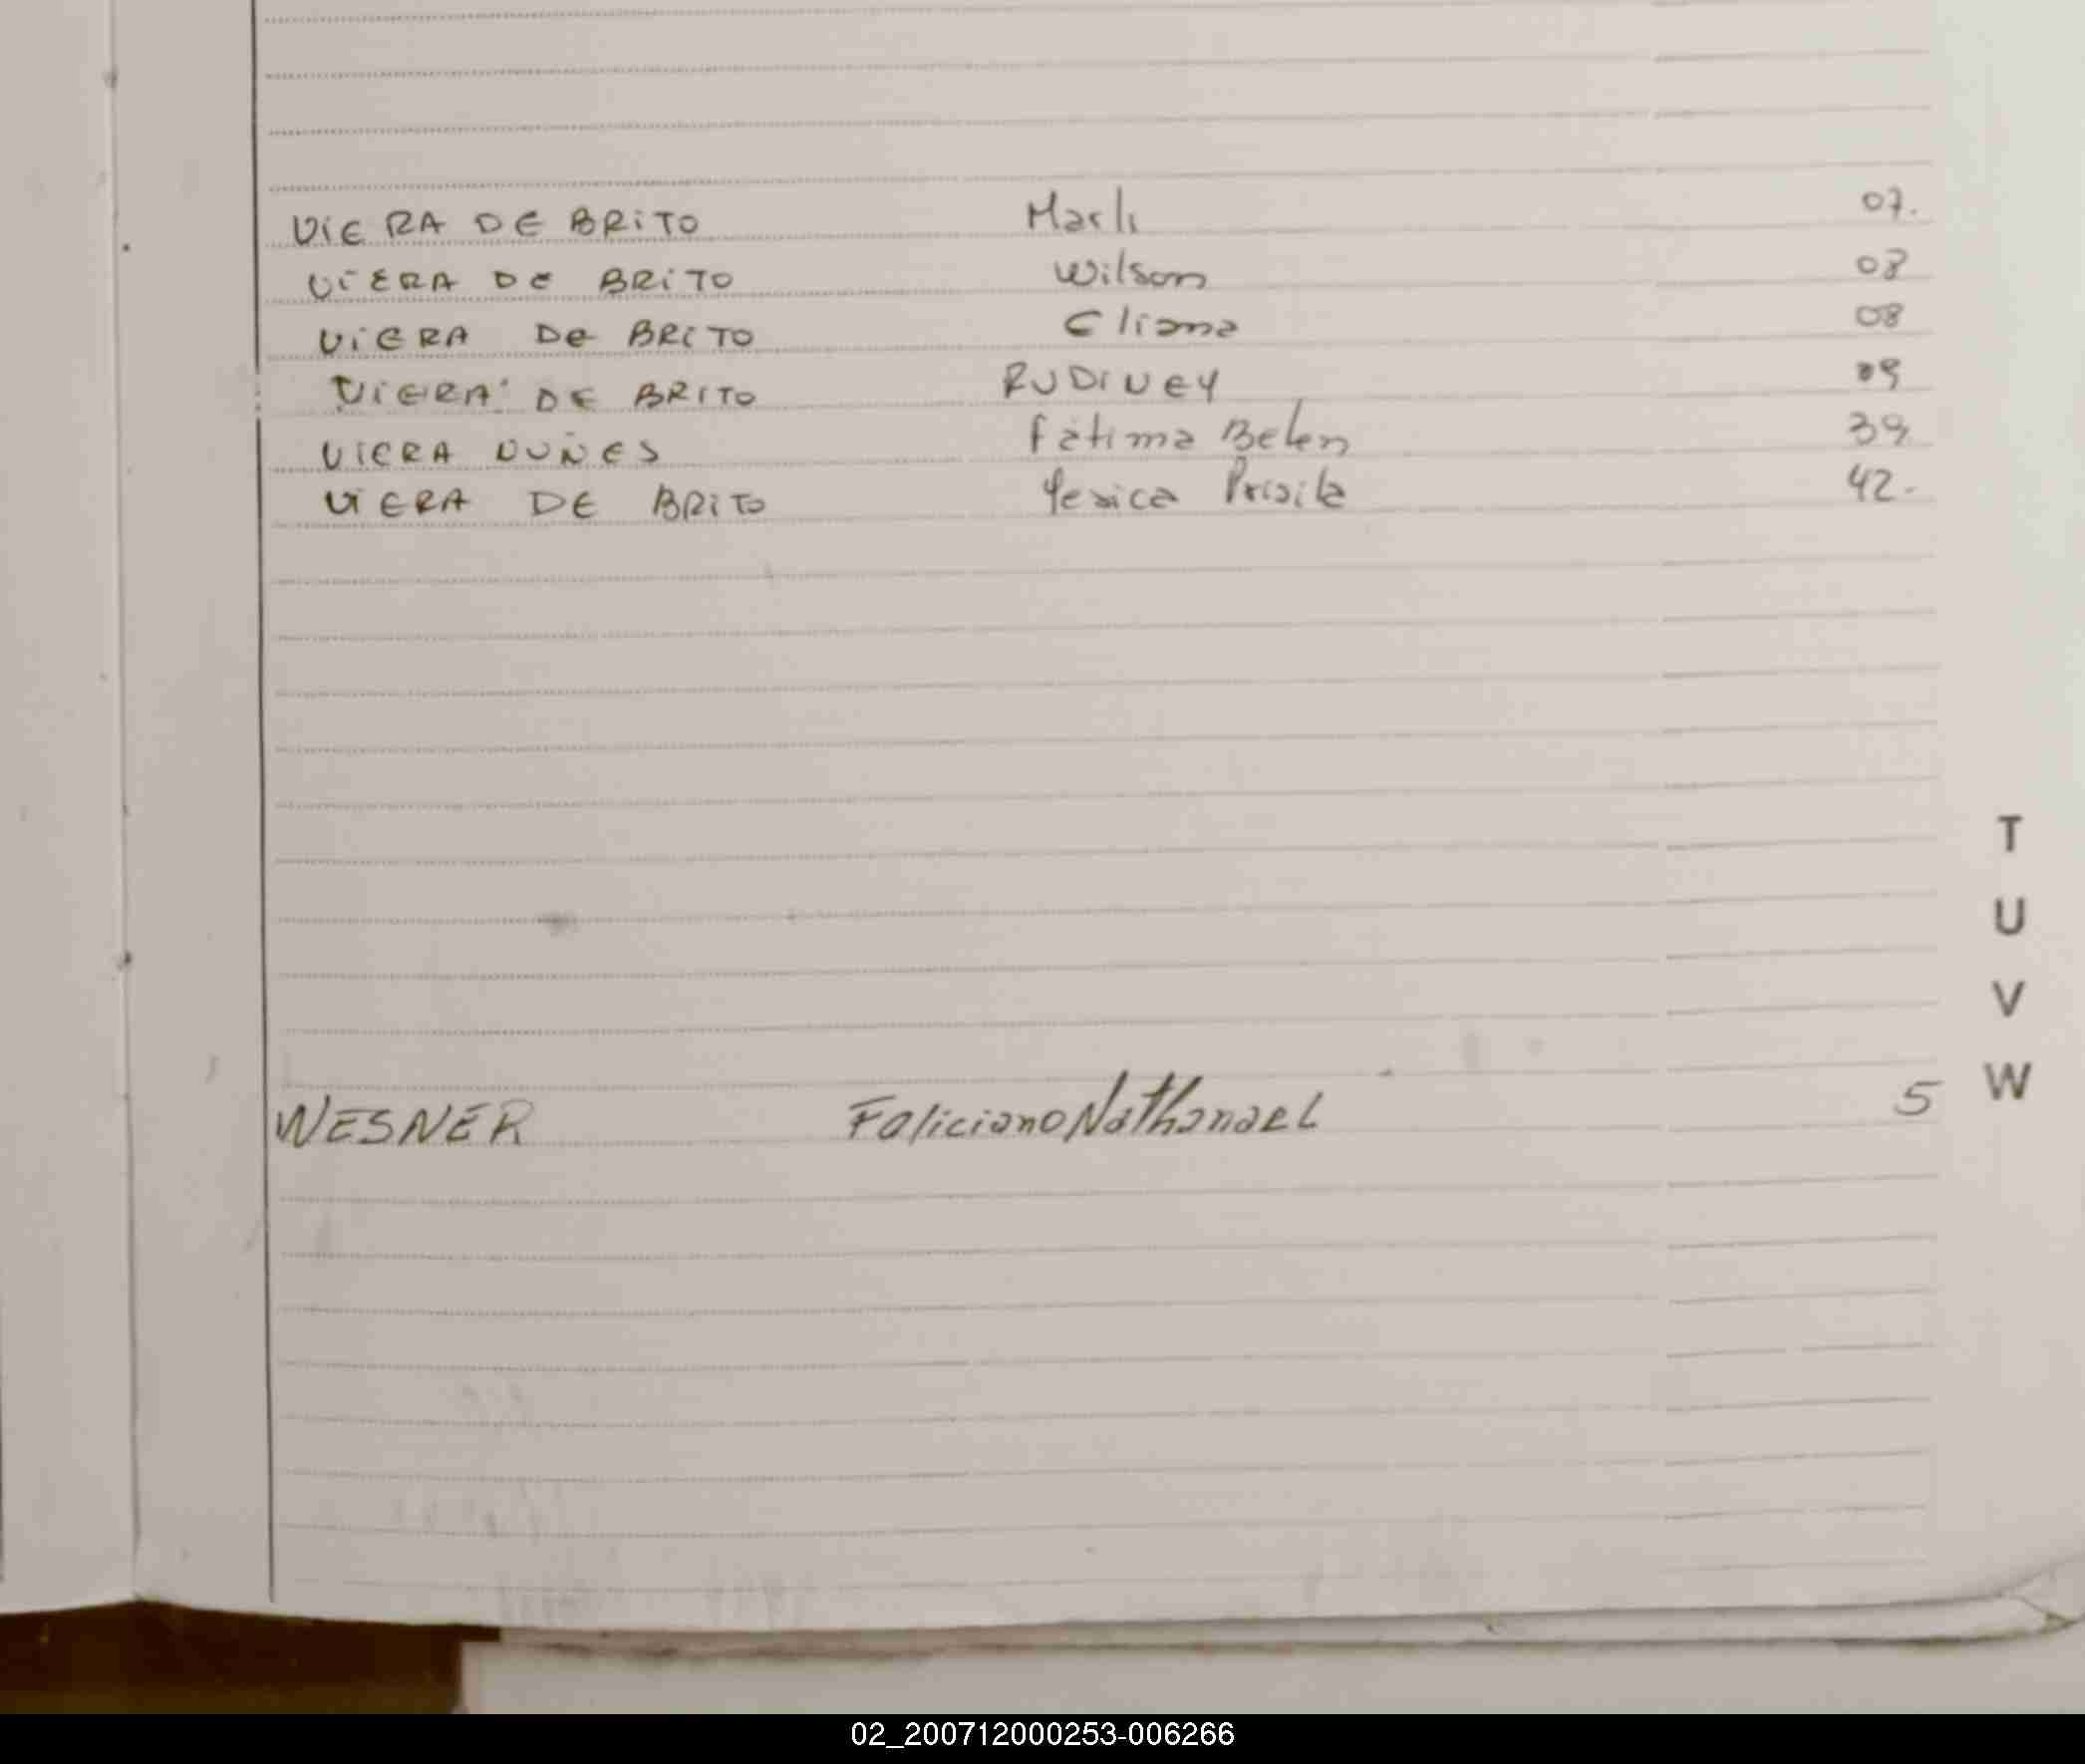 VIERA DE BRITO Marli 07.
VIERA DE BRITO Wilson 08
VIERA DE BRITO Eliana 08
VIERA DE BRITO RUDIVEY 09
VIERA NUÑES Fátima Belen 39
VIERA DE BRITO Yesica Prisila 42.
T
U
V
W
WESNER Faliciano Nathanael 5
02_200712000253-006266